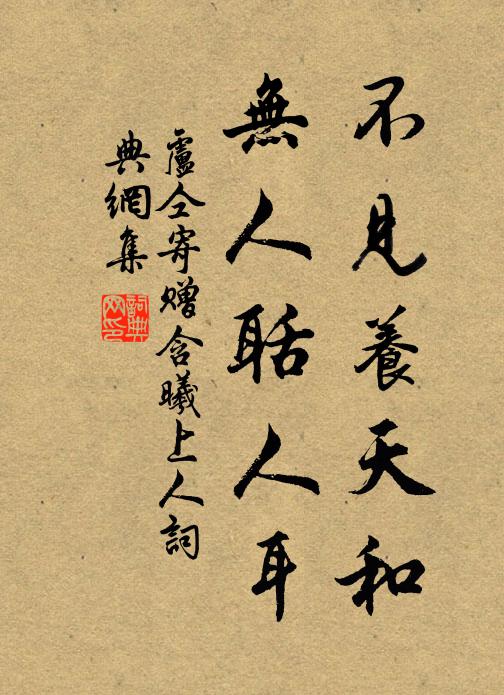 不見養天和
無人聒人耳
盧仝寄贈含曦上人詞
典網集
詞典
网印